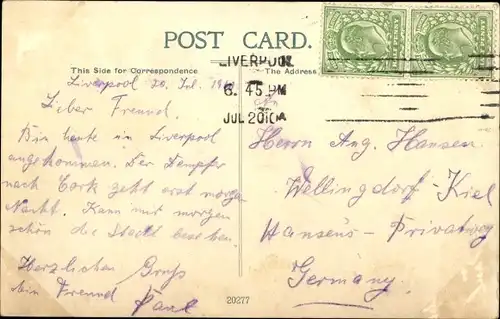 POST CARD.
This Side for Correspondence
The Address
LIVERPOOL
6.45 PM
JUL 20 10
Liverpool 20. Jul. 1910
Lieber Freund.
Bin heute in Liverpool
angekommen. Der Dampfer
nach Cork geht erst morgen
Nacht. Kann mir morgen
schön die Stadt besehen.
Herzlichen Gruß
dein Freund
Paul
An
Herrn Aug. Hansen
Wellingdorf-Kiel
Hansens-Privatweg
Germany.
20277